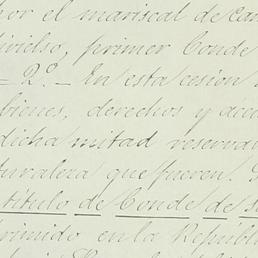 por el mariscal de cam
ivielso, primer Conde
= 2º = En esta cesion
bienes, derechos y acci
dicha mitad reservad
turaleza que fueren.
título de Conde de
rimido en la Repúbl